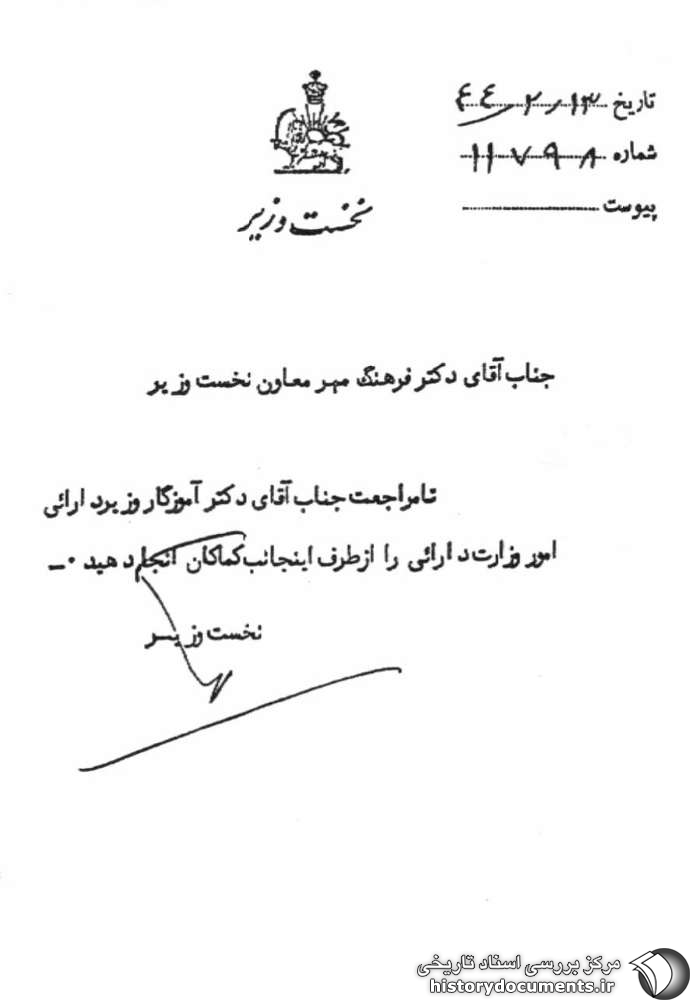 تاریخ ۴۴/۲/۱۳
شماره ۱۱۷۹۸
پیوست
نخست وزیر
جناب آقای دکتر فرهنگ مهر معاون نخست وزیر
تا مراجعت جناب آقای دکتر آموزگار وزیر دارائی
امور وزارت دارائی را از طرف اینجانب کماکان انجام دهید ۰ــ
نخست وزیر
مرکز بررسی اسناد تاریخی
historydocuments.ir